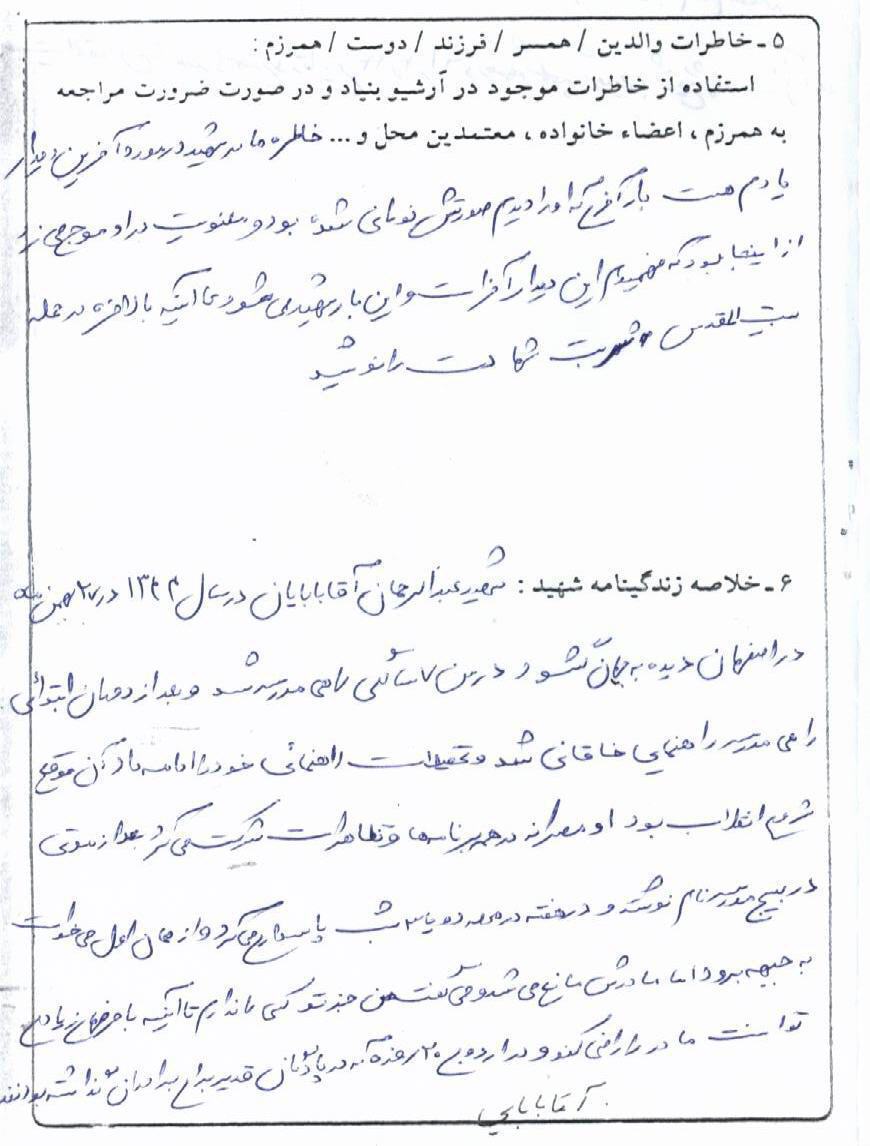 ۵ ـ خاطرات والدین / همسر / فرزند / دوست / همرزم :
استفاده از خاطرات موجود در آرشیو بنیاد و در صورت ضرورت مراجعه
به همرزم ، اعضاء خانواده ، معتمدین محل و ... خاطره مادر شهید در مورد آخرین دیدار
یادم هست بار آخر که او را دیدم صورتش نورانی شده بود و معنویت در او موج می زد
از اینجا بود که فهمیدم این دیدار آخر است و این بار شهید می شود تا اینکه بالاخره در حمله
بیت المقدس شربت شهادت را نوشید
۶ ـ خلاصه زندگینامه شهید : شهید عبدالرحمان آقابابایان در سال ۱۳۴۴ در ۲۷ بهمن ماه
در اصفهان دیده به جهان گشود و در سن ۷ سالگی راهی مدرسه شد و بعد از دوران ابتدائی
راهی مدرسه راهنمایی خاقانی شد و تحصیلات راهنمائی خود را ادامه داد آن موقع
شروع انقلاب بود او مصرانه در همه برنامه‌ها و تظاهرات شرکت می کرد بعد از مدتی
در بسیج مدرسه نام نوشته و در هفته در محله دو یا ۳ شب پاسداری می کرد و از همان اول می خواست
به جبهه برود اما مادرش مانع می شد و می گفت من جز تو کسی را ندارم تا اینکه با زیادی
توانست مادر را راضی کند و در اردوی ۲۰ روزه که در پادگان غدیر برای برادران گذاشته بودند
آقابابایی